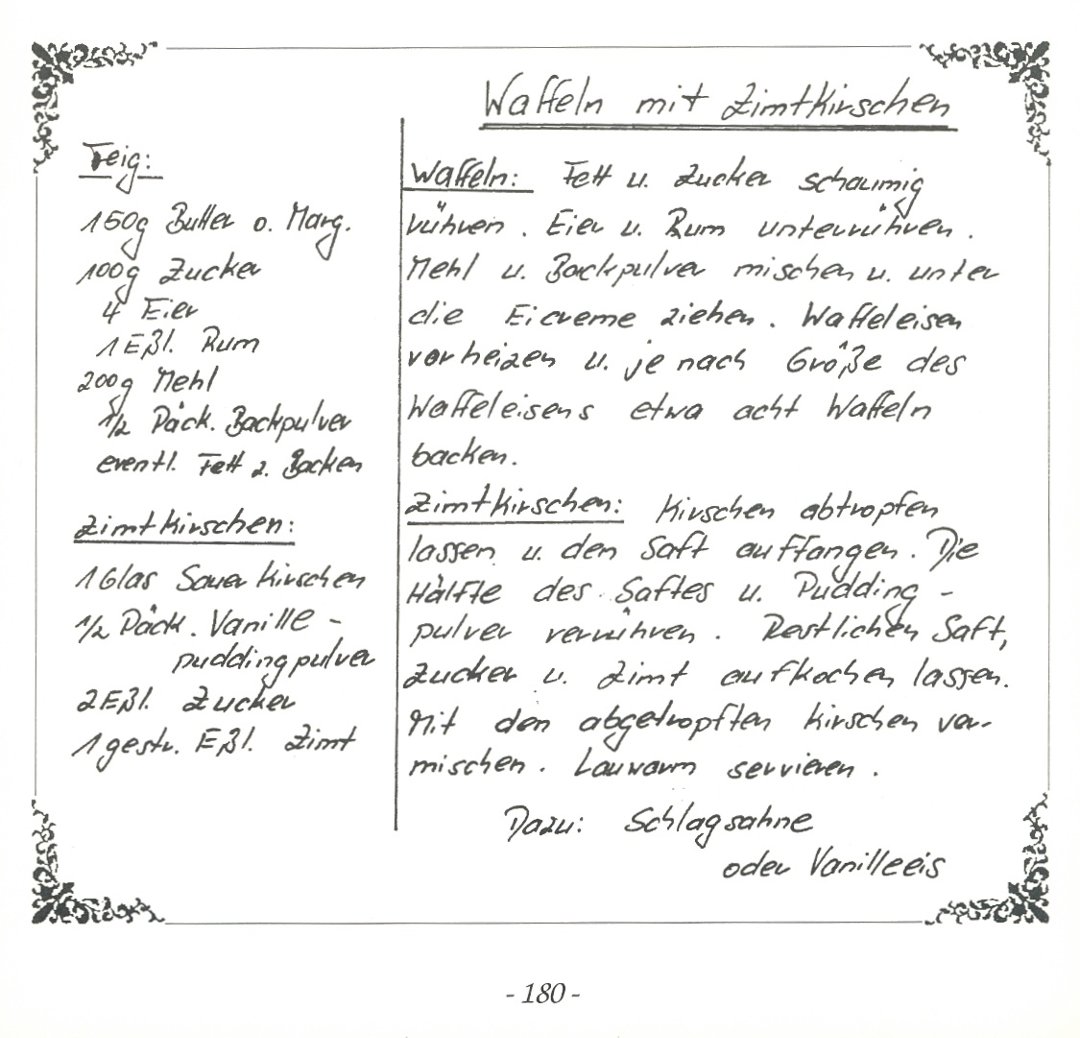 Waffeln mit Zimtkirschen
Teig:
150g Butter o. Marg.
100g Zucker
4 Eier
1 Eßl. Rum
200g Mehl
1/2 Päck. Backpulver
eventl. Fett z. Backen
Zimtkirschen:
1 Glas Sauerkirschen
1/2 Päck. Vanille-
puddingpulver
2 Eßl. Zucker
1 gestr. Eßl. Zimt
Waffeln: Fett u. Zucker schaumig
rühren. Eier u. Rum unterrühren.
Mehl u. Backpulver mischen u. unter
die Eicreme ziehen. Waffeleisen
vorheizen u. je nach Größe des
Waffeleisens etwa acht Waffeln
backen.
Zimtkirschen: Kirschen abtropfen
lassen u. den Saft auffangen. Die
Hälfte des Saftes u. Pudding-
pulver verrühren. Restlichen Saft,
Zucker u. Zimt aufkochen lassen.
Mit den abgetropften Kirschen ver-
mischen. Lauwarm servieren.
Dazu: Schlagsahne
oder Vanilleeis
- 180 -